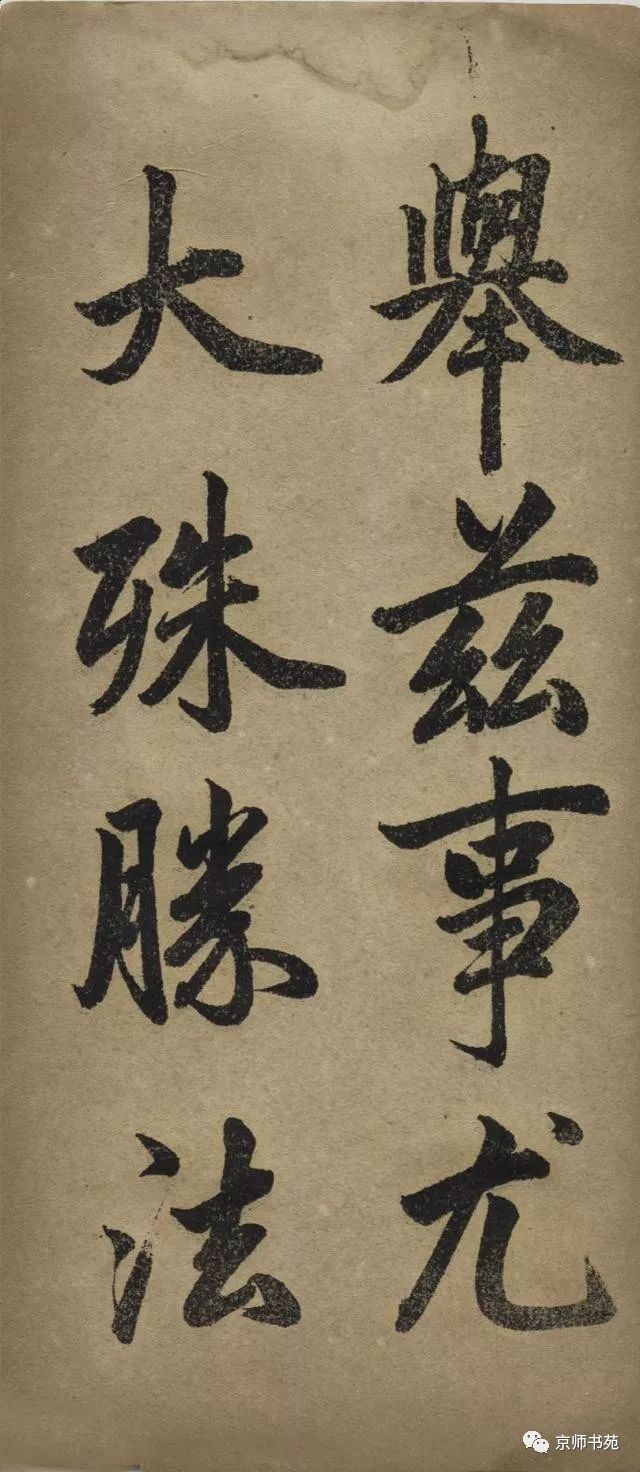 舉兹事尤
大殊勝法
京师书苑